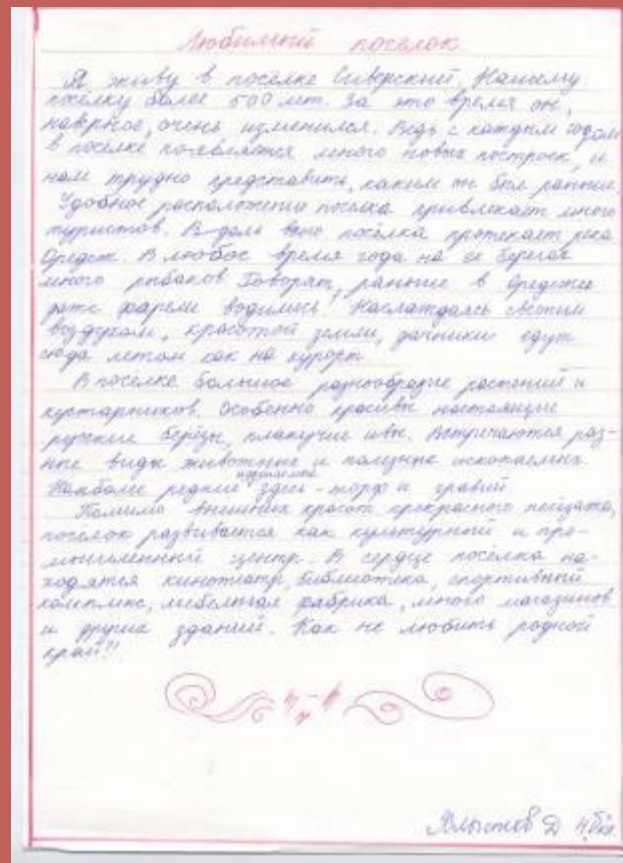 Любимый поселок.
Я живу в посёлке Сиверский. Нашему
посёлку более 500 лет. За это время он,
наврное, очень изменился. Ведь с каждым годом
в поселке появляется много новых построек, и
нам трудно представить, каким он был раньше.
Удобное расположение поселка привлекает много
туристов. В-доль всего посёлка протекает река
Оредеж. В любое время года на ее берегах
много рыбаков. Говорят, раньше в Оредеже
даже форели водились! Наслаждаясь свежим
воздухом, красотой земли, дачники едут
сюда летом как на курорт.
В поселке большое разнообразие растений и
кустарников. Особенно красивы настоящие
русские берёзы, плакучие ивы. Встречаются раз-
ные виды животных и полезных ископаемых.
Наиболее редкие здесь - торф и гравий
Помимо внешних красот прекрасного пейзажа,
поселок развивается как культурный и про-
мышленный центр. В сердце посёлка на-
ходятся кинотеатр, библиотека, спортивный
комплекс, мебельная фабрика, много магазинов
и других зданий. Как не любить родной
край?!
Д 4